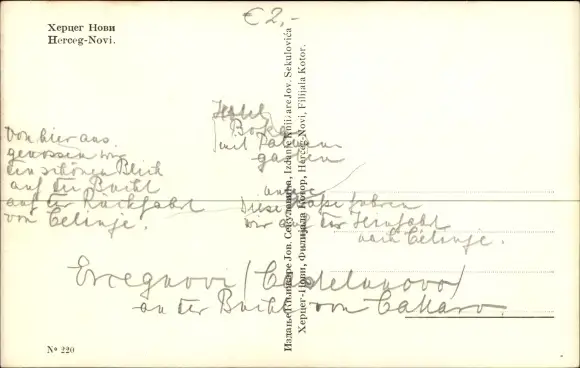 € 2,-
Херцег Нови
Herceg-Novi.
Hotel
Boka
mit Palmen
garten
Von hier aus
genossen wir
ein schönen Blick
auf die Bucht
auf der Rückfahrt
von Cetinje.
Diese Straße fuhren
wir auf der Hinfahrt
nach Cetinje.
Ercegnovi (Castelnuovo)
an der Bucht von Cattaro
Издање Књижаре Јов. Секуловића, Izdanje Knjižare Jov. Sekulovića
Херцег-Нови, Филијала Котор, Herceg-Novi, Filijala Kotor.
№ 220